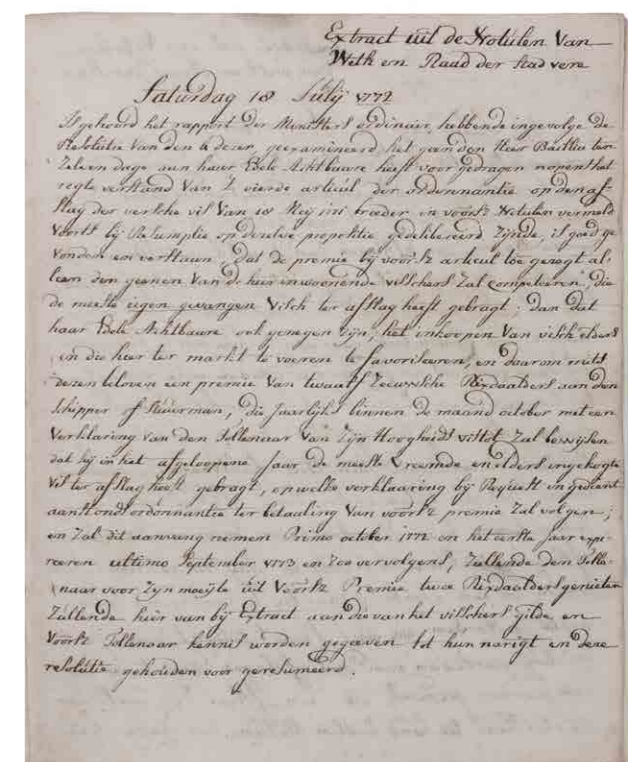 Extract uit de Notulen Van
Weth en Raad der stad vere
Saturdag 18 Julij 1772
Is gehoord het rapport der Ministers ordinair, hebbende ingevolge de
Resolutie van den 4 dezer, geexamineerd het geen den Heer Bailliu ten
Zelven dage aan haar Edele Achtbaare heeft voorgedragen nopens het
regte verstand Van 't vierde articul der ordonnantie op den af-
slag der versche vis Van 18 Meij 1771 breeder in voorsz Notulen vermeld
Voorts bij Resumptie op deselve propositie gedelibereerd zijnde, is goedge
vonden en verstaan, dat de premie bij voorsz articul toe gezegt al-
leen den geenen Van de hier inwoonende visschers Zal competeeren, die
de meeste eigen gevangen Visch ter afslag heeft gebragt; dan dat
haar Edele Achtbaare ook genegen zijn, het inkoopen Van visch elders
en die hier ter markt te voeren te favoriseeren, en daarom mits
dezen beloven een premie Van twaalf Zeeuwsche Rijxdaalders aan den
schipper of stuurman, die Jaarlijks binnen de maand october met een
Verklaring van den Tollenaar van Zijn Hoogheids vistol Zal bewijsen
dat hij in het afgeloopene Jaar de meeste vreemde en elders ingekogte
vis ter afslag heeft gebragt, op welke verklaaring bij Request in gedient
aanstonds ordonnantie ter betaaling Van voorsz premie Zal volgen;
en Zal dit aanvang nemen Primo october 1772 en het eerste Jaar expi-
reeren ultimo September 1773 en Zoo vervolgens, Zullende den Tolle-
naar voor Zijn moeijte uit Voorsz Premie twee Rijxdaalders genieten
Zullende hier van bij Extract aan die van het visschers gilde en
Voorsz Tollenaar kennis worden gegeven tot hun narigt en deze
resolutie gehouden voor geresumeerd.